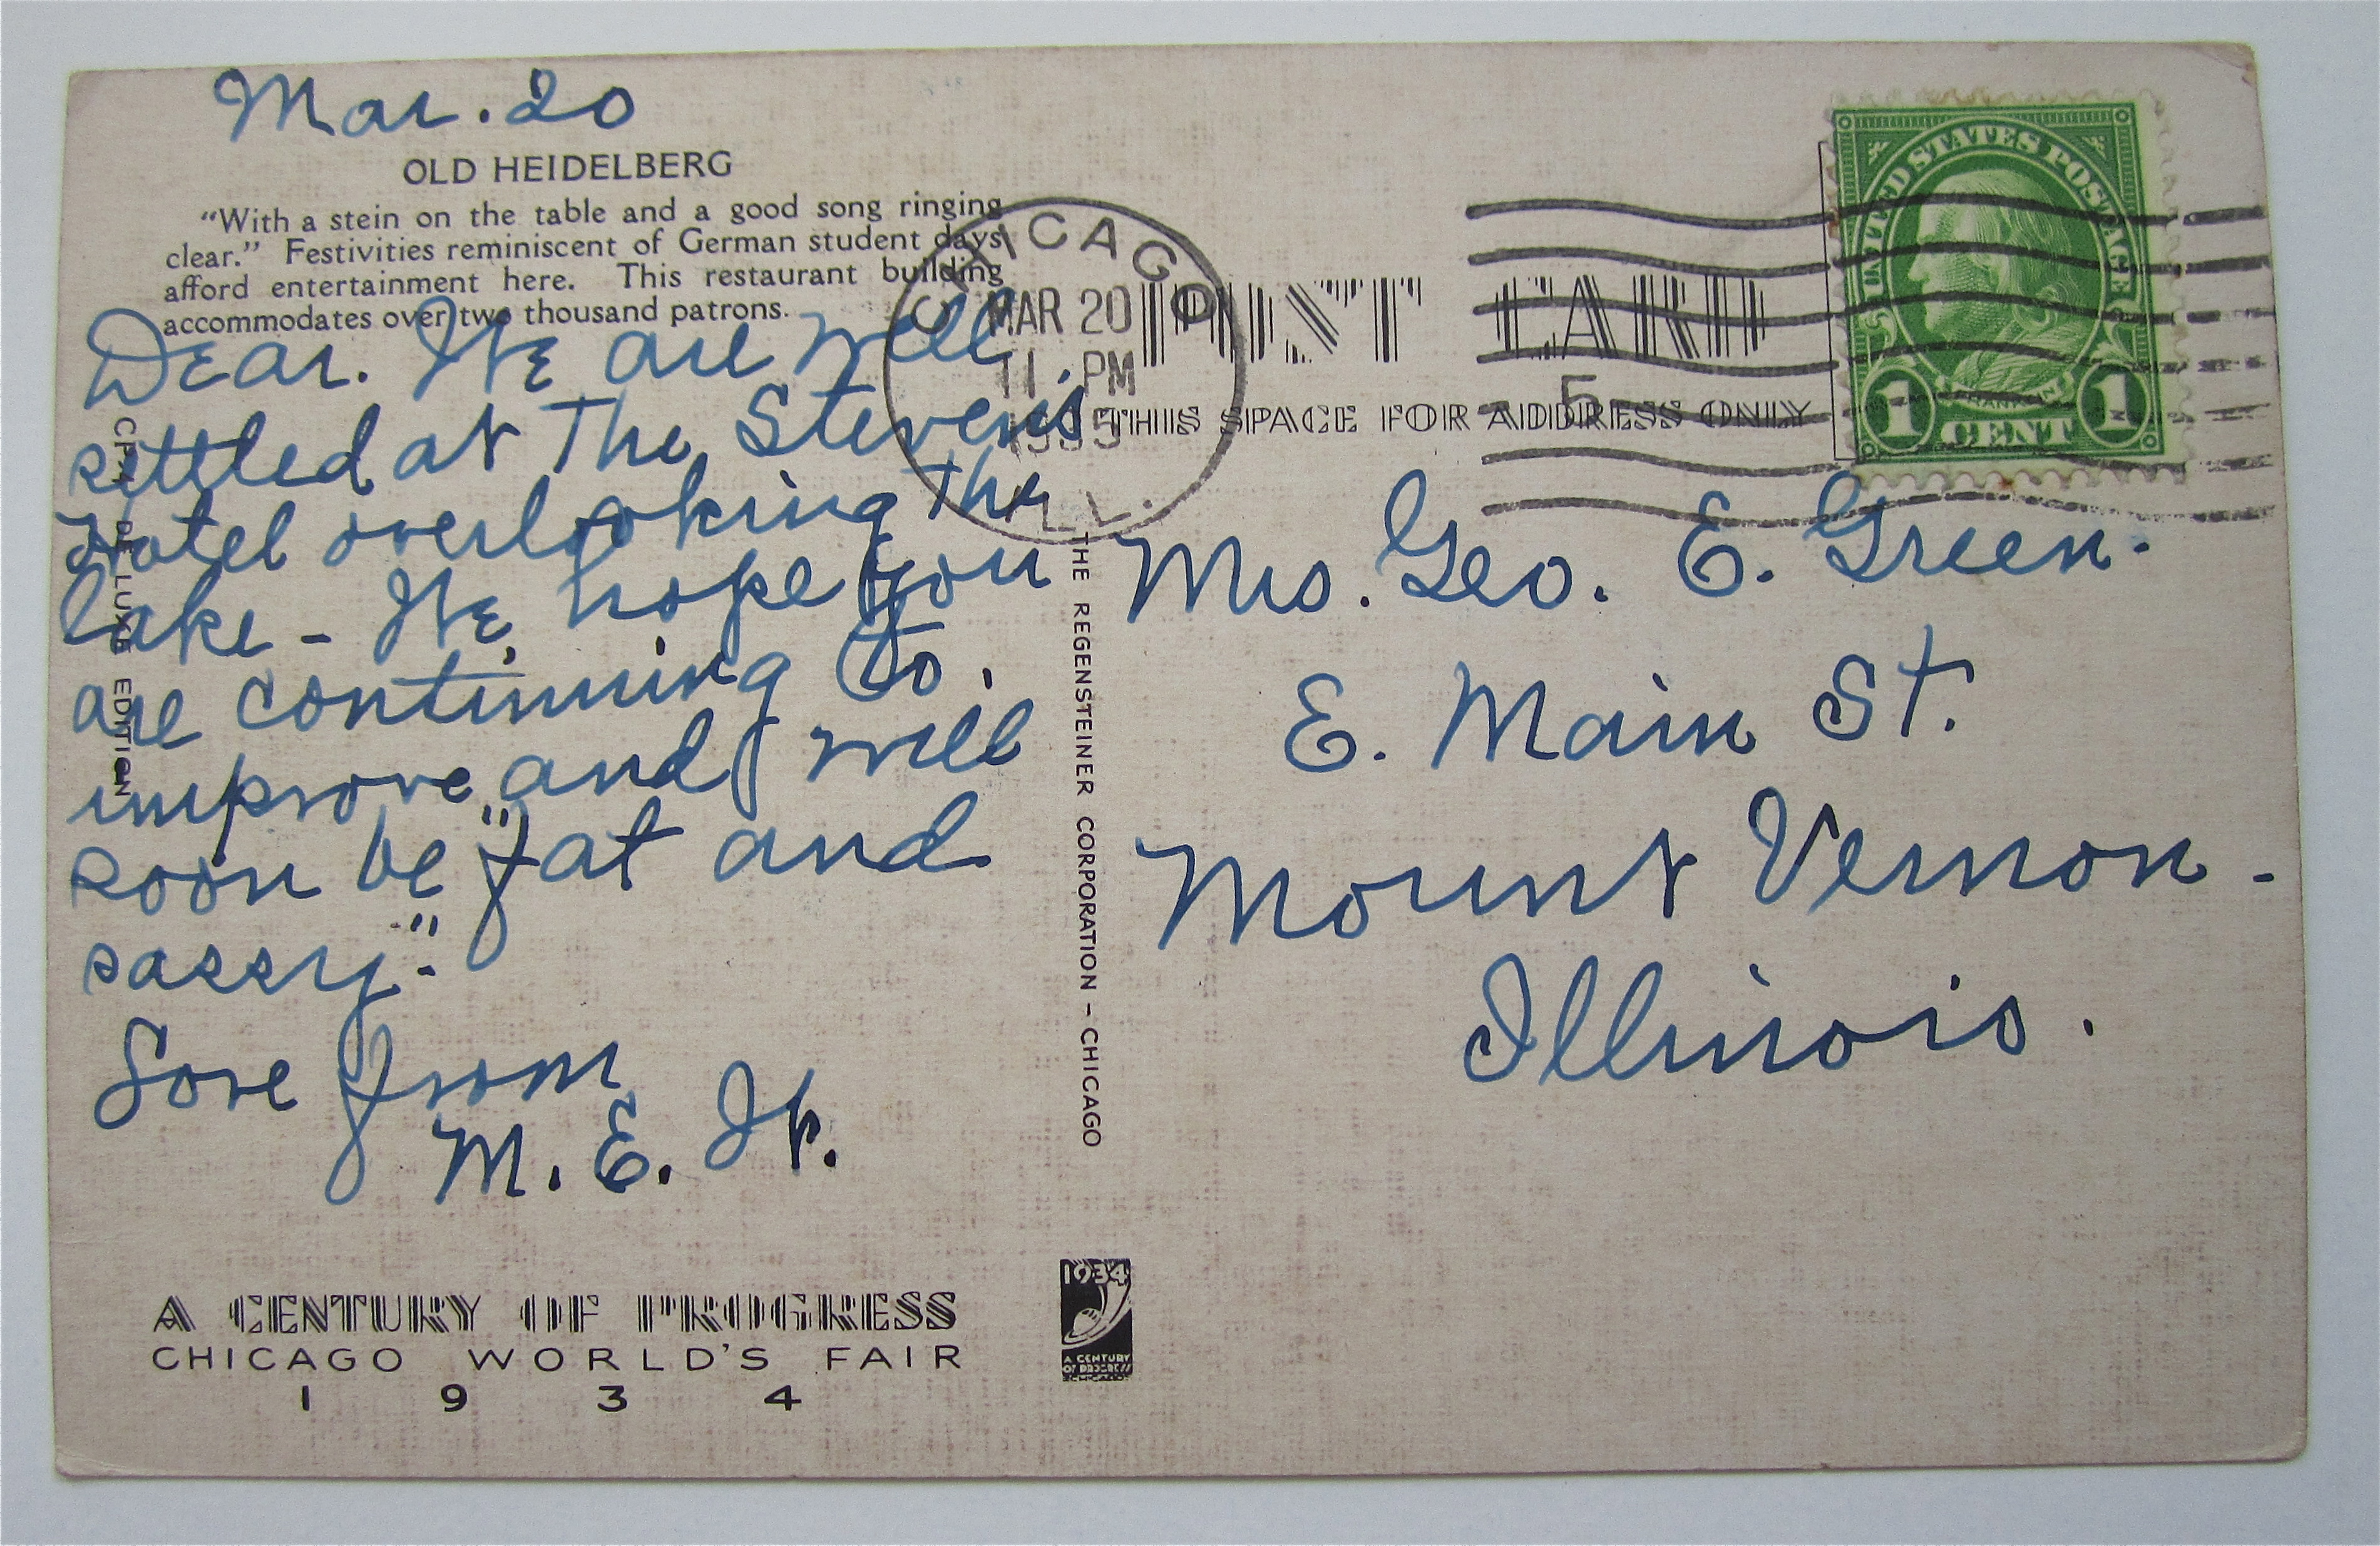 Mar. 20
OLD HEIDELBERG
"With a stein on the table and a good song ringing
clear." Festivities reminiscent of German student days
afford entertainment here. This restaurant building
accommodates over two thousand patrons.
Dear. We are well
settled at The Stevens
Hotel overlooking the
lake - We hope you
are continuing to.
improve and will
soon be "fat and
sassy."
Love from
M. E.
CHICAGO
MAR 20
11 PM
1935
ILL.
POST CARD
THIS SPACE FOR ADDRESS ONLY
5
UNITED STATES POSTAGE
FRANKLIN
1 CENT 1
Mrs. Geo. E. Green.
E. Main St.
Mount Vernon -
Illinois.
DE LUXE EDITION
THE REGENSTEINER CORPORATION – CHICAGO
A CENTURY OF PROGRESS
CHICAGO WORLD'S FAIR
1934
1934
A CENTURY
OF PROGRESS
CHICAGO